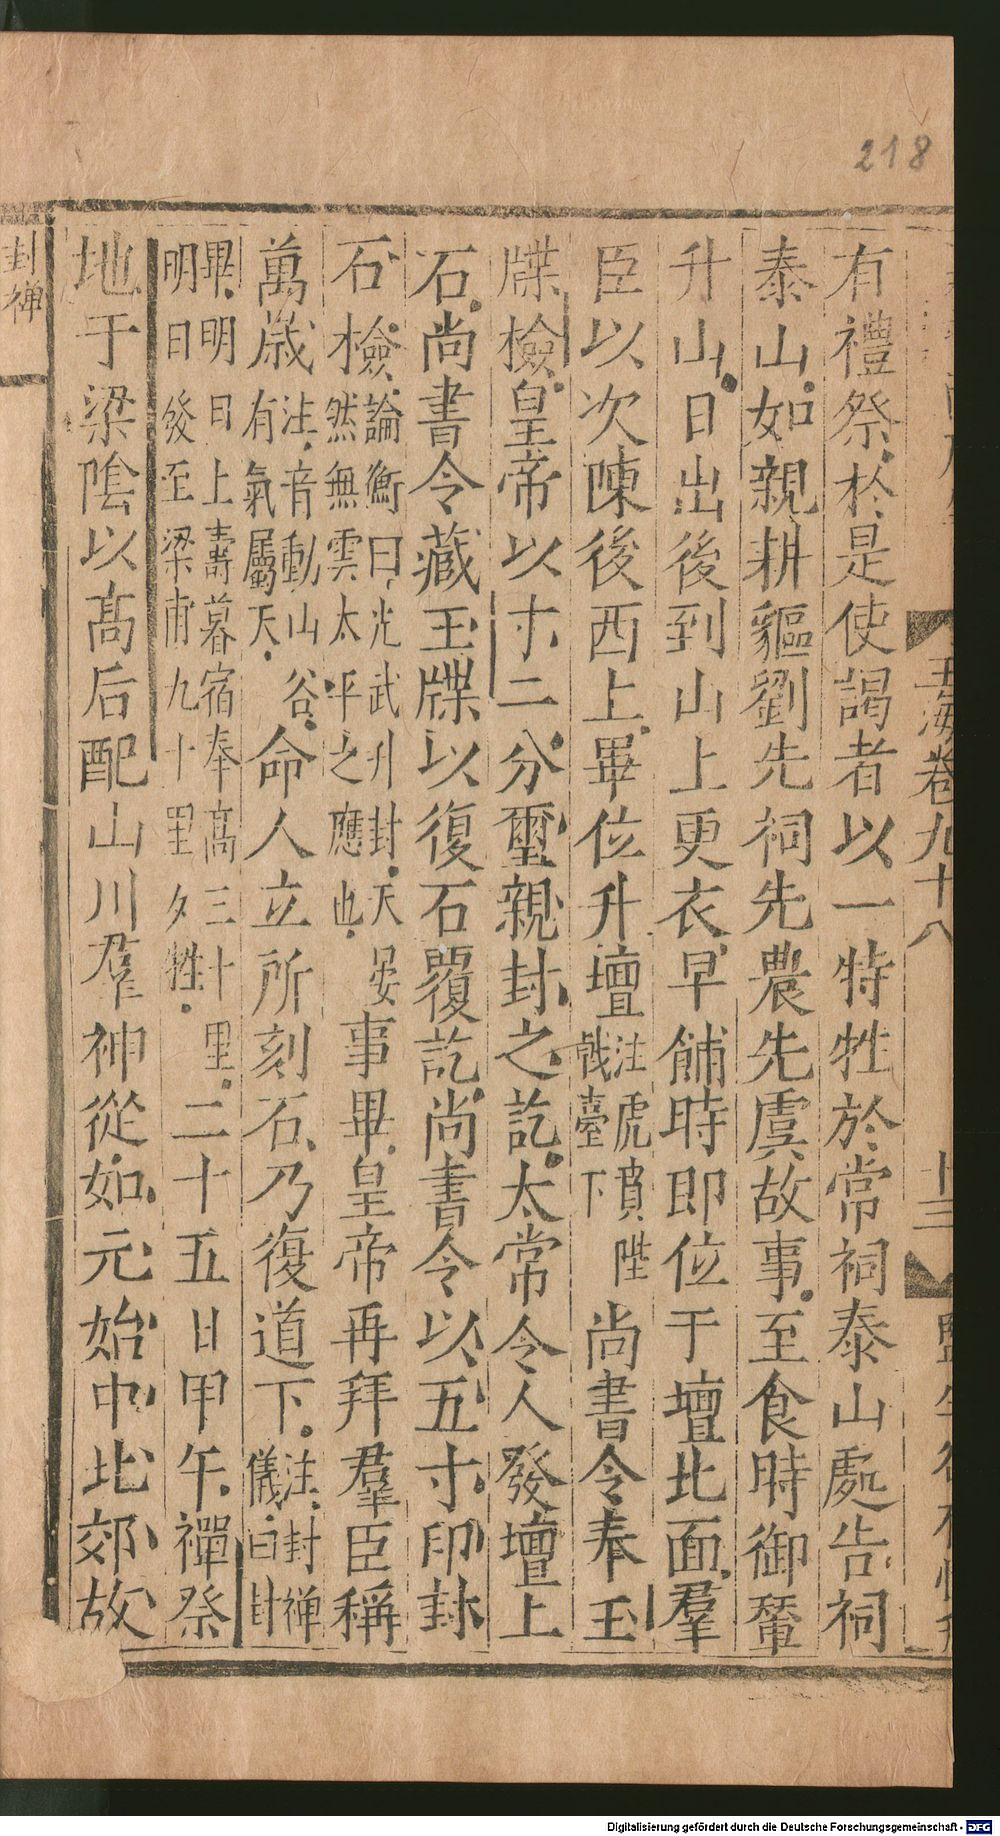 218
玉海卷九十八
十三
有禮祭於是使謁者以一特牲於常祠泰山處告祠
泰山如親耕貙劉先祠先農先虞故事至食時御輦
升山日出後到山上更衣早餔時即位于壇北面羣
臣以次陳後西上畢位升壇注虎賁陛戟臺下尚書令奉玉
牒檢皇帝以寸二分璽親封之訖太常令人發壇上
石尚書令藏玉牒以復石覆訖尚書令以五寸印封
石檢論衡曰光武升封天晏然無雲太平之應也事畢皇帝再拜羣臣稱
萬歲注音動山谷有氣屬天命人立所刻石乃復道下注封禅儀曰封
畢明日上壽暮宿奉高三十里明日發至梁甫九十里夕牲二十五日甲午禪祭
地于梁陰以高后配山川羣神從如元始中北郊故
封禅
Digitalisierung gefördert durch die Deutsche Forschungsgemeinschaft - DFG